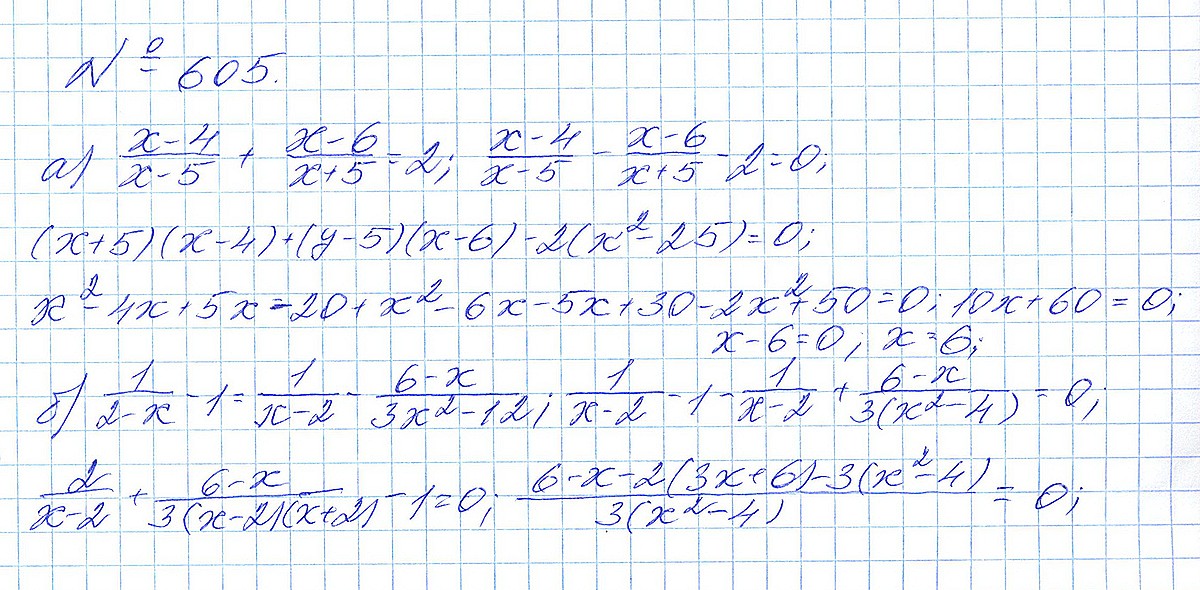 № 605.
а) (x-4)/(x-5) + (x-6)/(x+5) = 2; (x-4)/(x-5) - (x-6)/(x+5) - 2 = 0;
(x+5)(x-4)+(y-5)(x-6)-2(x²-25)=0;
x²-4x+5x-20+x²-6x-5x+30-2x²+50=0; 10x+60=0;
x-6=0; x=6;
б) 1/(2-x) - 1 = 1/(x-2) - (6-x)/(3x²-12); 1/(x-2) - 1 - 1/(x-2) + (6-x)/(3(x²-4)) = 0;
2/(x-2) + (6-x)/(3(x-2)(x+2)) - 1 = 0; (6-x-2(3x+6)-3(x²-4))/(3(x²-4)) = 0;